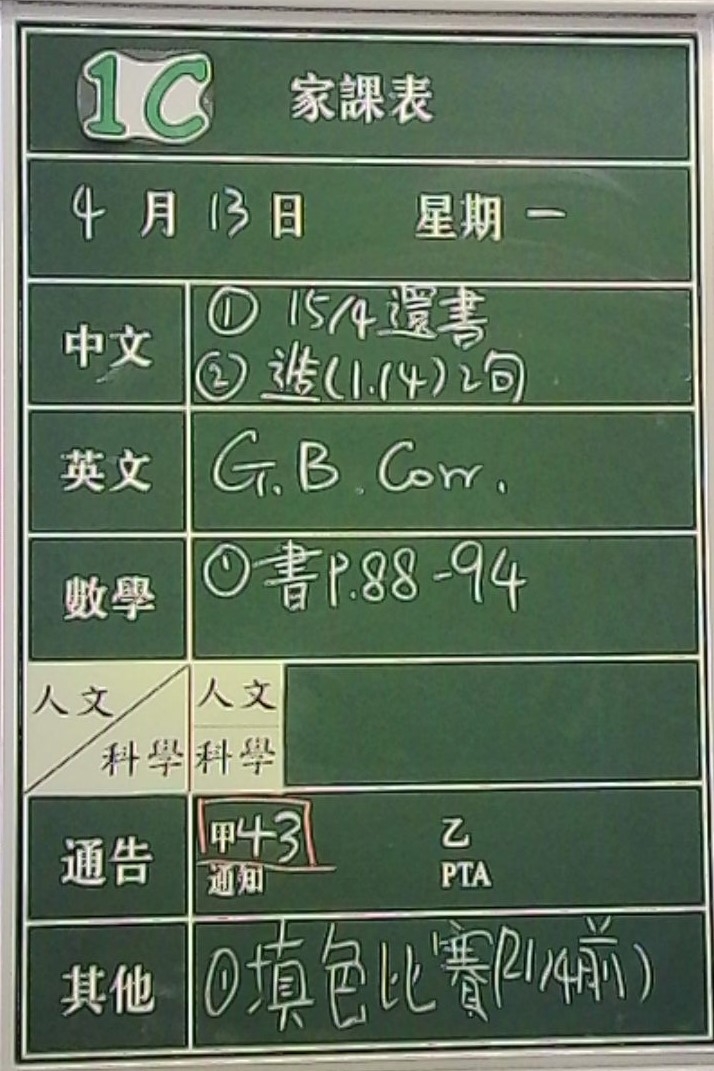 1C 家課表
4月13日 星期一
中文 ① 15/4還書
② 造(1.14)2句
英文 G.B. Corr.
數學 ①書P.88-94
人文 人文
科學 科學
通告 甲43 乙
通知 PTA
其他 ①填色比賽(21/4前)